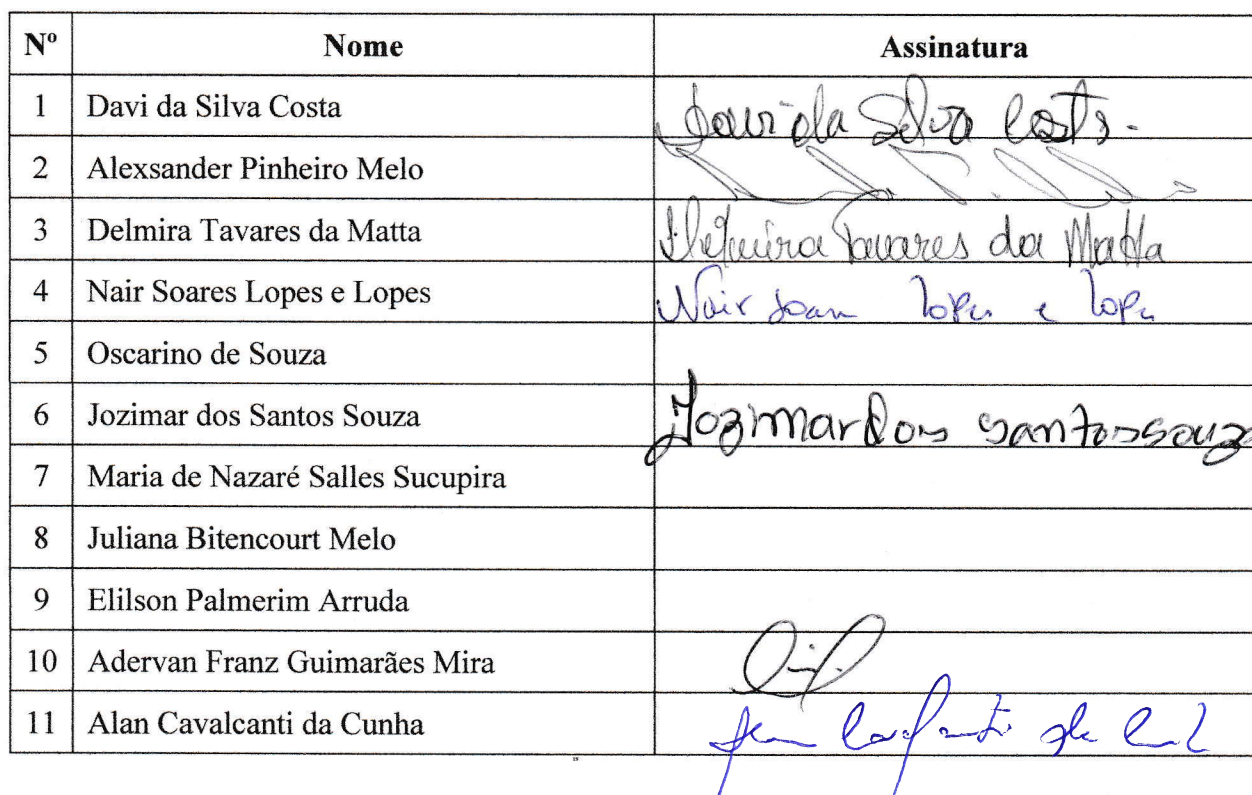 Nº Nome Assinatura
1 Davi da Silva Costa Davi da Silva Costa.
2 Alexsander Pinheiro Melo
3 Delmira Tavares da Matta Tavares da Matta
4 Nair Soares Lopes e Lopes Nair Soares Lopes e Lopes
5 Oscarino de Souza
6 Jozimar dos Santos Souza Jozimar dos santos souza
7 Maria de Nazaré Salles Sucupira
8 Juliana Bitencourt Melo
9 Elilson Palmerim Arruda
10 Adervan Franz Guimarães Mira
11 Alan Cavalcanti da Cunha